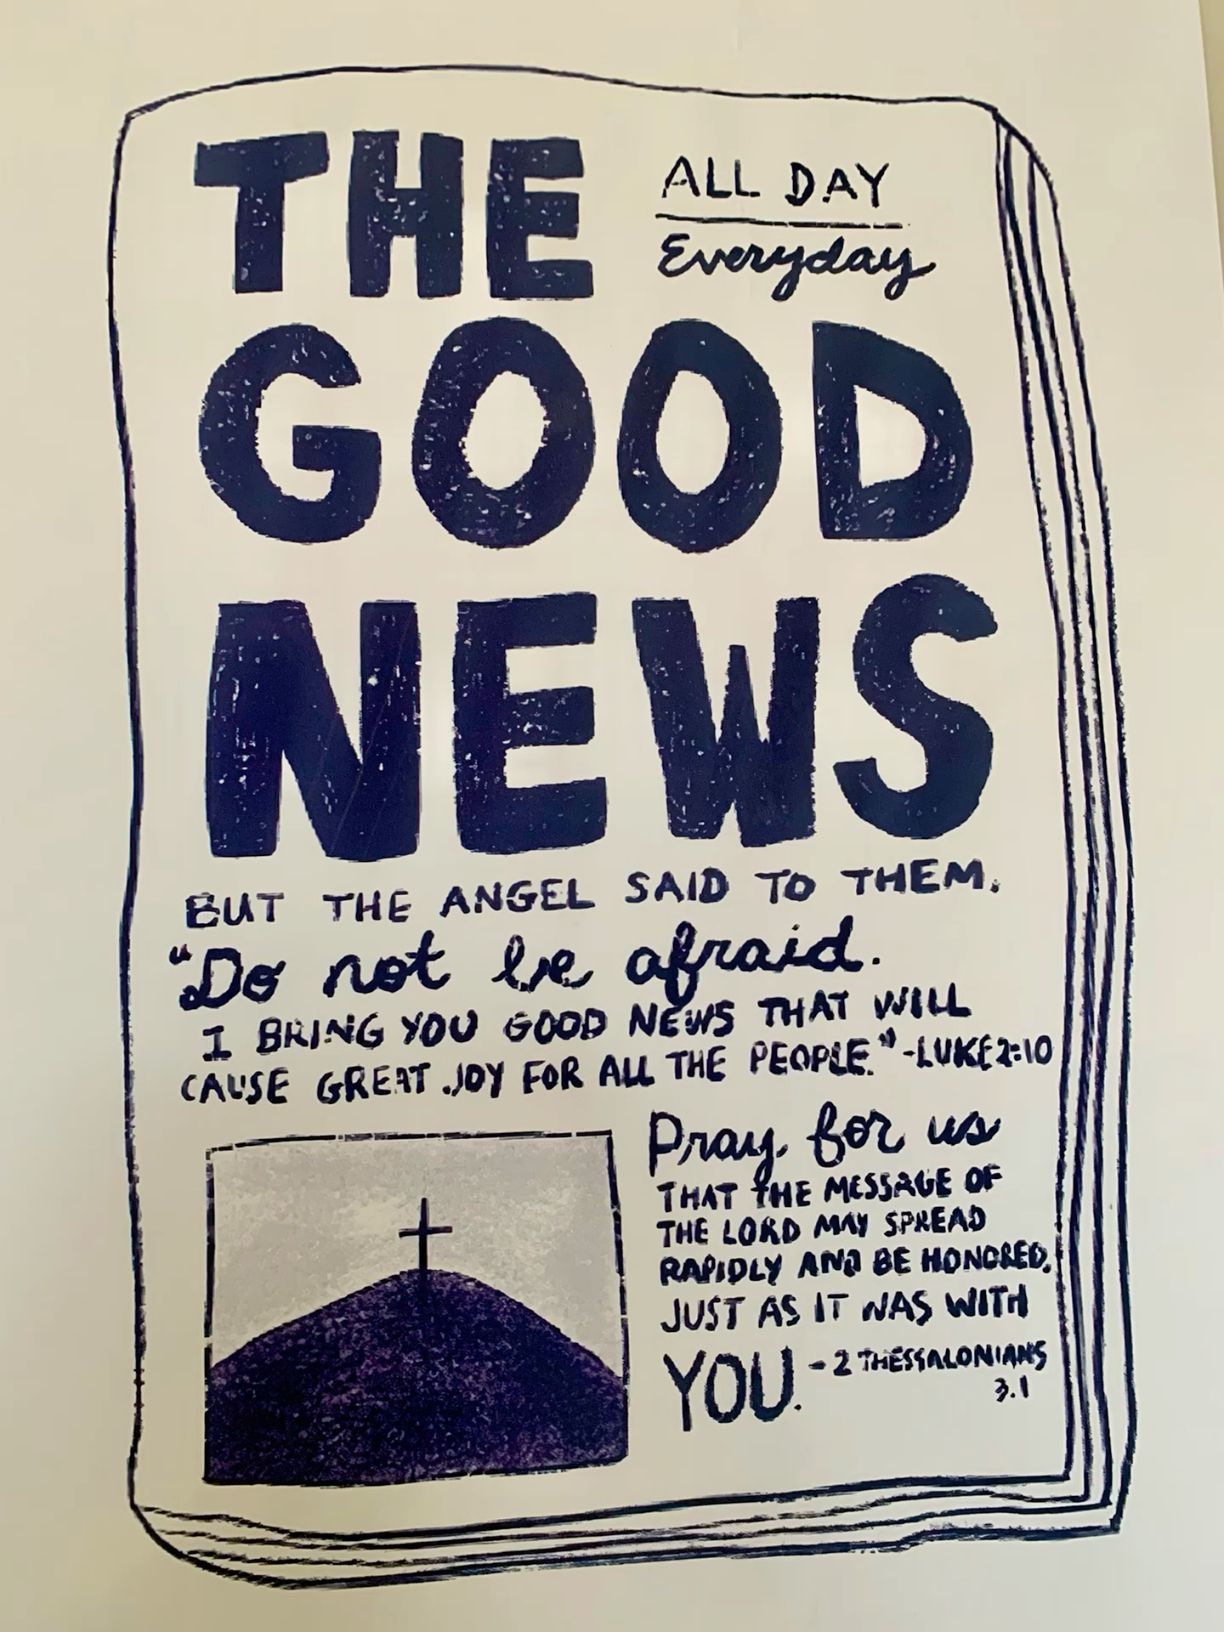 THE
ALL DAY
Everyday
GOOD
NEWS
BUT THE ANGEL SAID TO THEM.
"Do not be afraid.
I BRING YOU GOOD NEWS THAT WILL
CAUSE GREAT JOY FOR ALL THE PEOPLE." -LUKE 2:10
Pray for us
THAT THE MESSAGE OF
THE LORD MAY SPREAD
RAPIDLY AND BE HONORED,
JUST AS IT WAS WITH
YOU. - 2 THESSALONIANS
3.1